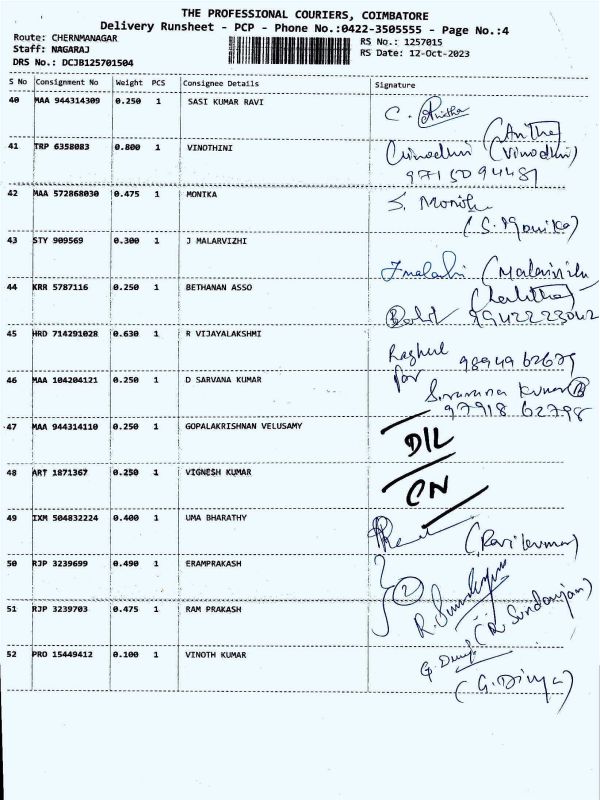 THE PROFESSIONAL COURIERS, COIMBATORE
Delivery Runsheet - PCP - Phone No.:0422-3505555 - Page No.:4
Route: CHERNMANAGAR
Staff: NAGARAJ
DRS No.: DCJB125701504
RS No.: 1257015
RS Date: 12-Oct-2023
S No Consignment No Weight PCS Consignee Details Signature
40 MAA 944314309 0.250 1 SASI KUMAR RAVI
C. Anitha
(Anitha)
41 TRP 6358083 0.800 1 VINOTHINI
(Vinodhni)
9715094481
42 MAA 572868030 0.475 1 MONIKA
S. Monika
(S. Monika)
43 STY 909569 0.300 1 J MALARVIZHI
44 KRR 5787116 0.250 1 BETHANAN ASSO
(Lalitha)
9942223042
45 HRD 714291028 0.630 1 R VIJAYALAKSHMI
Raghul 9894962679
46 MAA 104204121 0.250 1 D SARVANA KUMAR
for Saravana Kumar
97918 62798
47 MAA 944314110 0.250 1 GOPALAKRISHNAN VELUSAMY
D/L
48 ART 1871367 0.250 1 VIGNESH KUMAR
CN
49 IXM 504832224 0.400 1 UMA BHARATHY
(Ravikumar)
50 RJP 3239699 0.490 1 ERAMPRAKASH
2
51 RJP 3239703 0.475 1 RAM PRAKASH
(R. Sundarajan)
52 PRO 15449412 0.100 1 VINOTH KUMAR
(G. Divya)